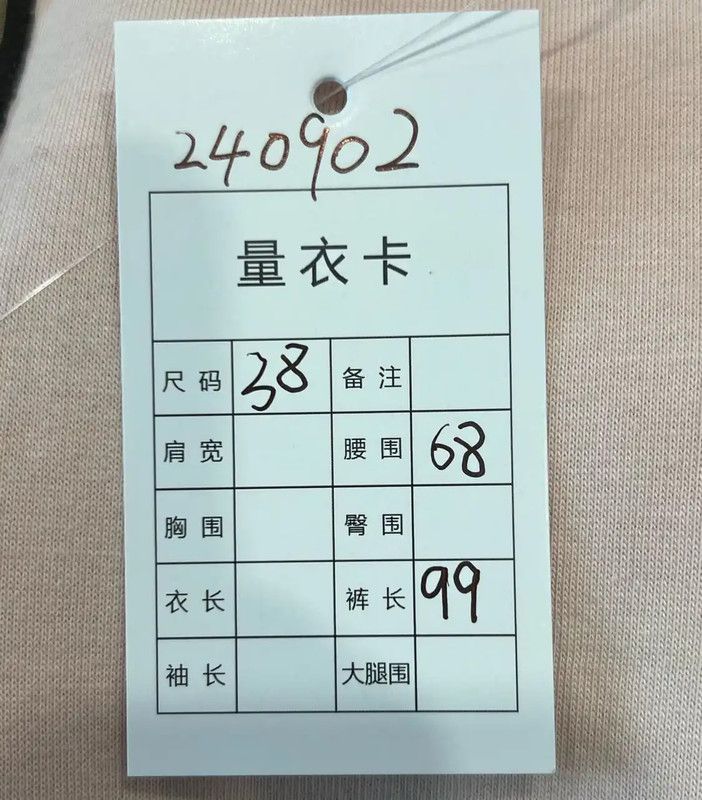 240902
量衣卡
尺码 38 备注
肩宽 腰围 68
胸围 臀围
衣长 裤长 99
袖长 大腿围